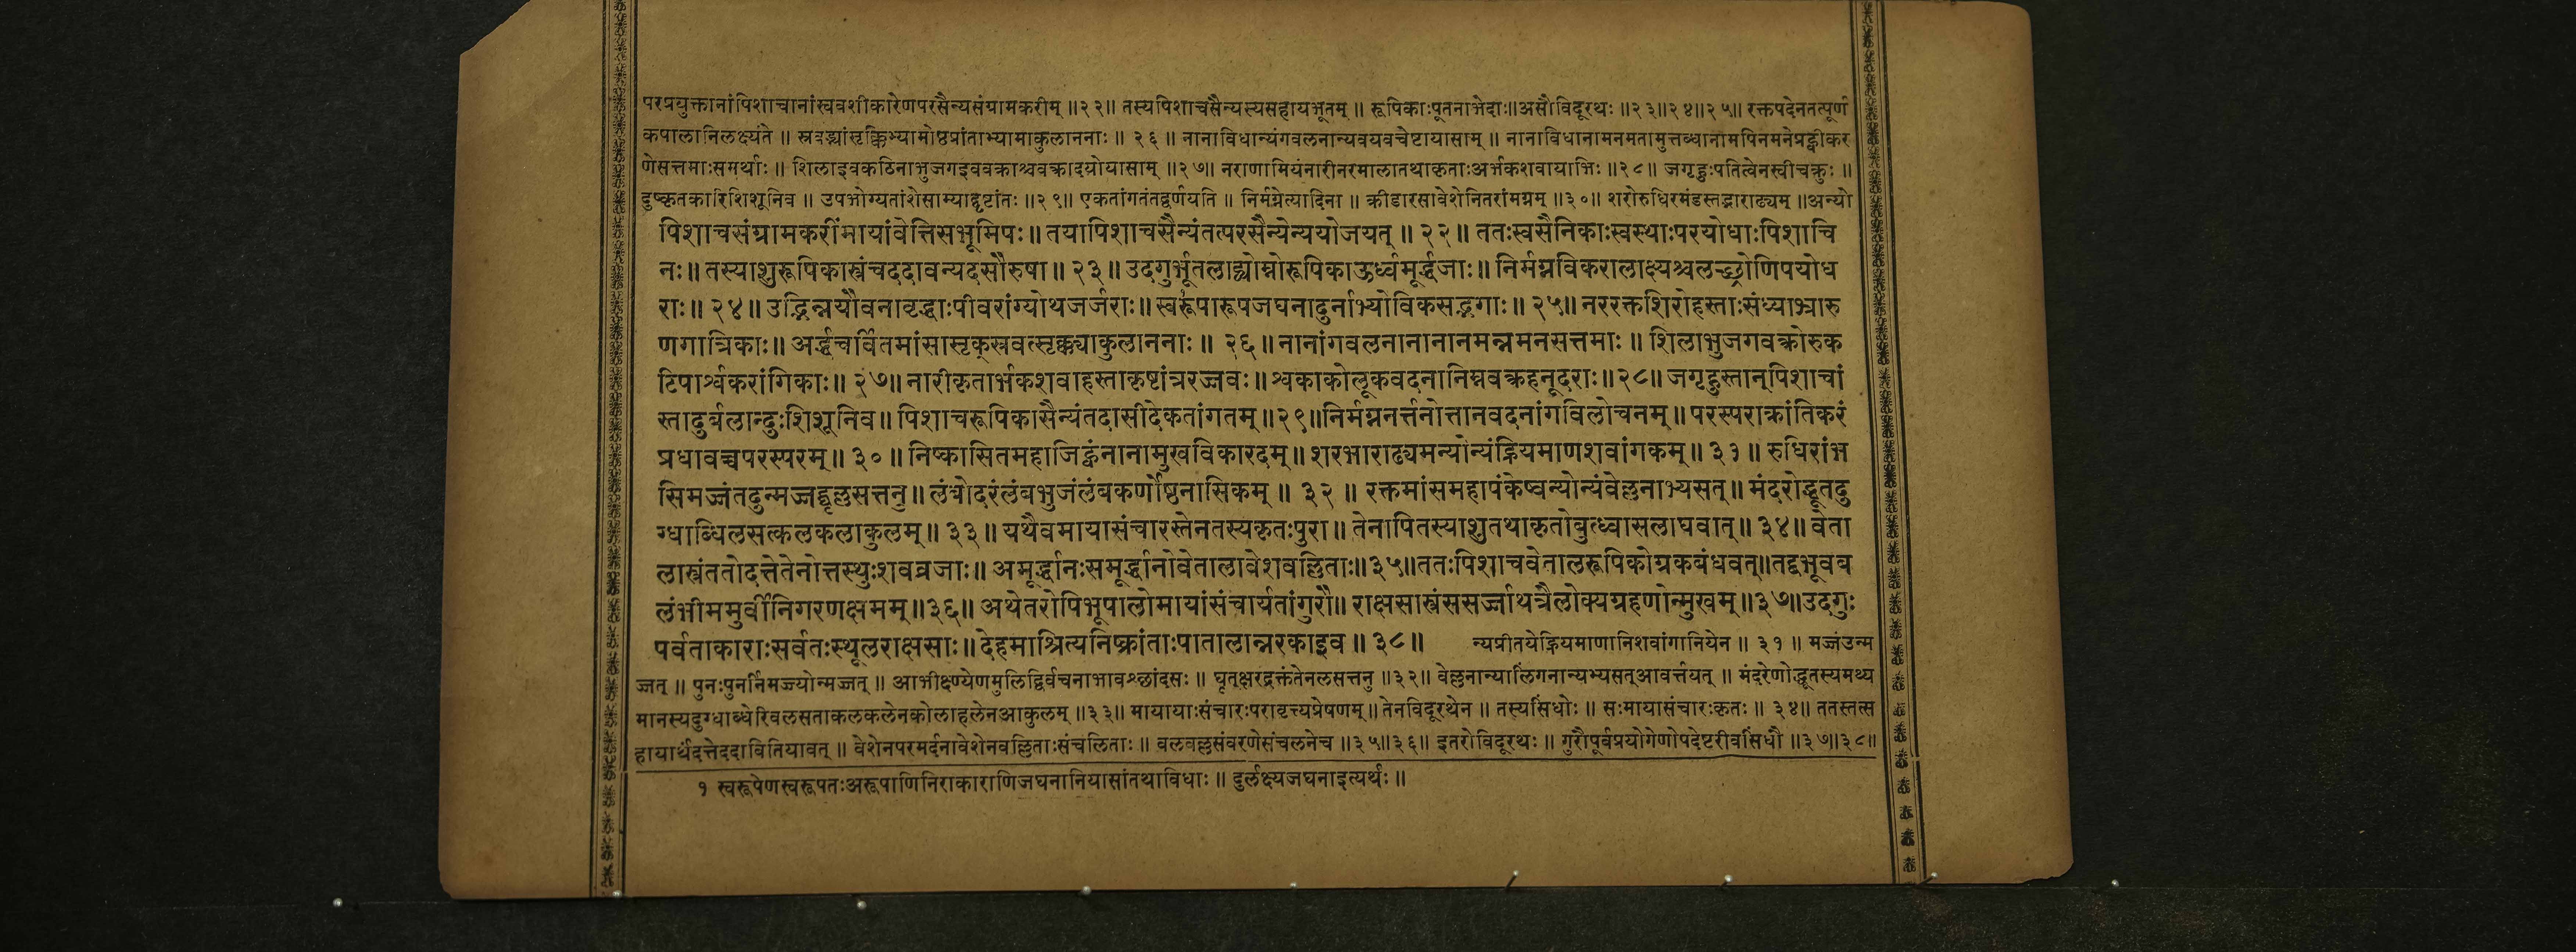 परप्रयुक्तानांपिशाचानांस्ववशीकारेणपरसैन्यसंग्रामकरीम् ॥२२॥ तस्यपिशाचसैन्यस्यसहायभूतम् ॥ रूपिकाःपूतनाभेदाः॥असौविदूरथः ॥२३॥२४॥२५॥ रक्तपदेनतत्पूर्ण
कपालानिलक्ष्यंते ॥ स्रवद्भ्यांसृक्किभ्यामोष्ठप्रांताभ्यामाकुलाननाः ॥ २६ ॥ नानाविधान्यंगवलनान्यवयवचेष्टायासाम् ॥ नानाविधानामनमतामुत्तब्धानामपिनमनेप्रह्वीकर
णेसत्तमाःसमर्थाः ॥ शिलाइवकठिनाभुजगइववक्राश्चवक्रादयोयासाम् ॥२७॥ नराणामियंनारीनरमालातथाकृताःअर्भकशवायाभिः ॥२८॥ जगृहुःपतित्वेनस्वीचक्रुः ॥
दुष्कृतकारिशिशूनिव ॥ उपभोग्यतांशेसाम्याद्दृष्टांतः ॥२९॥ एकतांगतंतद्वर्णयति ॥ निर्मग्नेत्यादिना ॥ क्रीडारसावेशेनितरांमग्नम् ॥३०॥ शरोरुधिरमंडस्तद्भाराढ्यम् ॥अन्यो
पिशाचसंग्रामकरींमायांवेत्तिसभूमिपः॥ तयापिशाचसैन्यंतत्परसैन्येन्ययोजयत् ॥ २२॥ ततःस्वसैनिकाःस्वस्थाःपरयोधाःपिशाचि
नः॥ तस्याशुरूपिकास्त्रंचददावन्यदसौरुषा॥ २३॥ उदगुर्भूतलाद्व्योम्नोरूपिकाऊर्ध्वमूर्द्धजाः॥ निर्मग्नविकरालाक्ष्यश्चलच्छ्रोणिपयोध
राः॥ २४॥ उद्भिन्नयौवनावृद्धाःपीवरांग्योथजर्जराः॥ स्वरूपारूपजघनादुर्नाभ्योविकसद्भगाः॥ २५॥ नररक्तशिरोहस्ताःसंध्याभ्रारु
णगात्रिकाः॥ अर्द्धचर्वितमांसासृक्स्रवत्सृक्क्याकुलाननाः॥ २६॥ नानांगवलनानानानमन्नमनसत्तमाः॥ शिलाभुजगवक्रोरुक
टिपार्श्वकरांगिकाः॥ २७॥ नारीकृतार्भकशवाहस्ताकृष्टांत्ररज्जवः॥ श्वकाकोलूकवदनानिम्नवक्रहनूदराः॥२८॥ जगृहुस्तान्पिशाचां
स्तादुर्बलान्दुःशिशूनिव॥ पिशाचरूपिकासैन्यंतदासीदेकतांगतम्॥२९॥निर्मग्ननर्त्तनोत्तानवदनांगविलोचनम्॥ परस्पराक्रांतिकरं
प्रधावच्चपरस्परम्॥ ३०॥ निष्कासितमहाजिह्वंनानामुखविकारदम्॥ शरभाराढ्यमन्योन्यंह्रियमाणशवांगकम्॥ ३१॥ रुधिरांभ
सिमज्जंतदुन्मज्जद्धृल्लसत्तनु॥ लंबोदरंलंबभुजंलंबकर्णोष्ठनासिकम्॥ ३२ ॥ रक्तमांसमहापंकेष्वन्योन्यंवेल्लनाभ्यसत्॥ मंदरोद्धूतदु
ग्धाब्धिलसत्कलकलाकुलम्॥ ३३॥ यथैवमायासंचारस्तेनतस्यकृतःपुरा॥ तेनापितस्याशुतथाकृतोबुत्ध्वासलाघवात्॥ ३४॥ वेता
लास्त्रंततोदत्तेतेनोत्तस्थुःशवव्रजाः॥ अमूर्द्धानःसमूर्द्धानोवेतालावेशवल्गिताः॥३५॥ततःपिशाचवेतालरूपिकोग्रकबंधवत्॥तद्बभूवब
लंभीममुर्वींनिगरणक्षमम्॥३६॥ अथेतरोपिभूपालोमायांसंचार्यतांगुरौ॥ राक्षसास्त्रंससर्ज्जाथत्रैलोक्यग्रहणोन्मुखम्॥३७॥उदगुः
पर्वताकाराःसर्वतःस्थूलराक्षसाः॥ देहमाश्रित्यनिष्क्रांताःपातालान्नरकाइव॥ ३८॥ न्यप्रीतयेह्रियमाणानिशवांगानियेन ॥ ३१ ॥ मज्जंउन्म
ज्जत् ॥ पुनःपुनर्निमज्ज्योन्मज्जत् ॥ आभीक्ष्ण्येणमुलिद्विर्वचनाभावश्छांदसः ॥ घृत्क्षरद्रक्तंतेनलसत्तनु ॥३२॥ वेल्लनान्यालिंगनान्यभ्यसत्आवर्त्तयत् ॥ मंदरेणोद्धूतस्यमथ्य
मानस्यदुग्धाब्धेरिवलसताकलकलेनकोलाहलेनआकुलम् ॥३३॥ मायायाःसंचारःपरावृत्त्यप्रेषणम्॥ तेनविदूरथेन ॥ तस्यसिंधोः ॥ सःमायासंचारःकृतः ॥ ३४॥ ततस्तत्स
हायार्थंदत्तेददावितियावत् ॥ वेशेनपरमर्दनावेशेनवल्लिताःसंचलिताः ॥ वलवल्लसंवरणेसंचलनेच ॥३५॥३६॥ इतरोविदूरथः ॥ गुरौपूर्वप्रयोगेणोपदेष्टरीवसिंधौ ॥३७॥३८॥
१ स्वरूपेणस्वरूपतःअरूपाणिनिराकाराणिजघनानियासांतथाविधाः ॥ दुर्लक्ष्यजघनाइत्यर्थः ॥